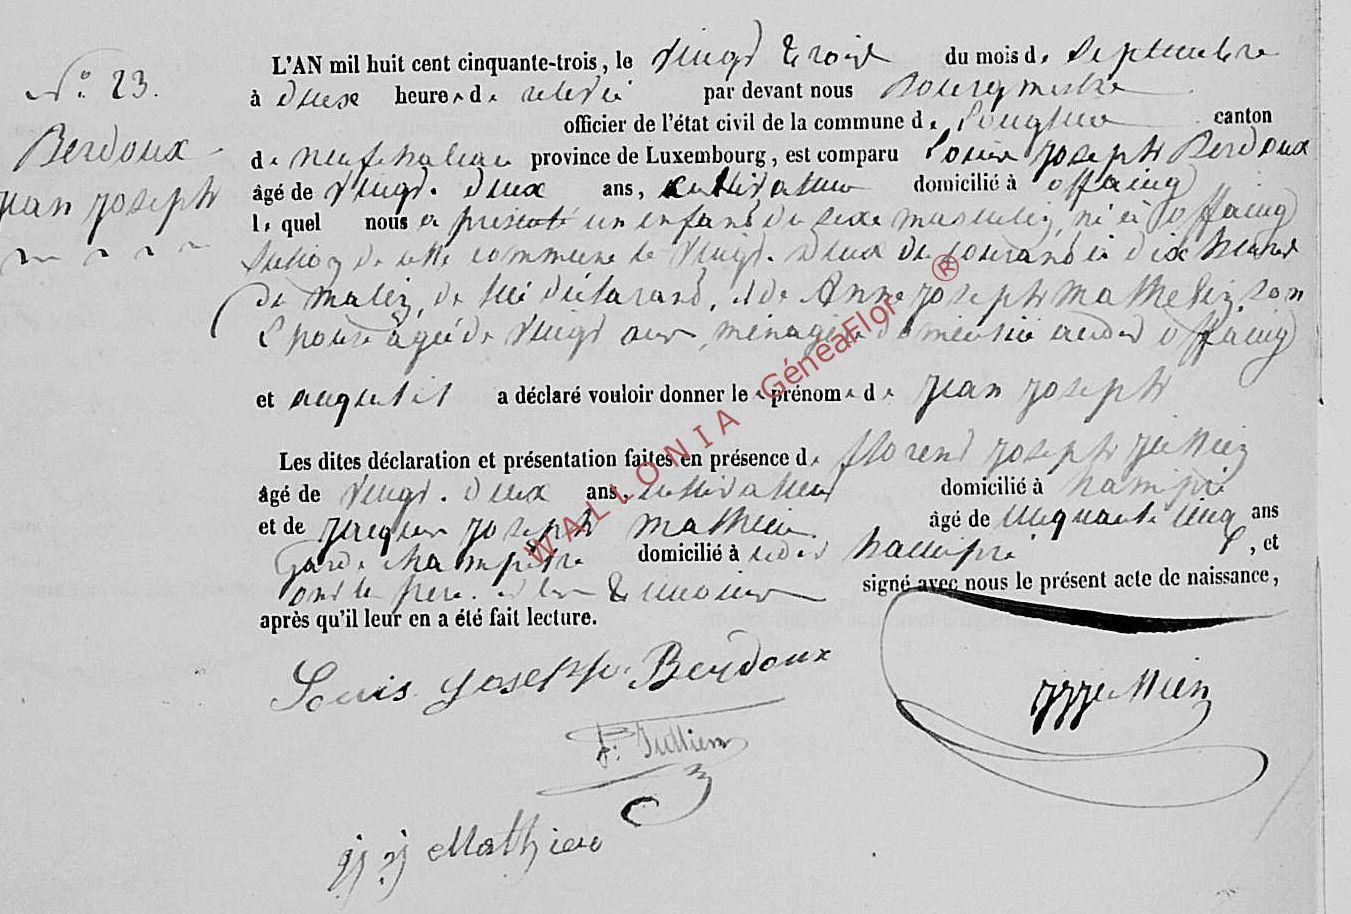 N° 23.
Berdoux
Jean Joseph
L'AN mil huit cent cinquante-trois, le Vingt trois du mois de Septembre
à deux heures de relevé par devant nous Bourgmestre
officier de l'état civil de la commune de Longlier canton
de neufchateau province de Luxembourg, est comparu Louis Joseph Berdoux
âgé de Vingt-deux ans, cultivateur domicilié à offaing
lequel nous a présenté un enfant du sexe masculin, né à offaing
section de cette commune le Vingt-deux du courant à dix heures
du matin, de lui déclarant, et de Anne Joseph Mathelin son
Epouse âgée de Vingt ans, ménagère domiciliée audit offaing
et auquel il a déclaré vouloir donner les prénoms de Jean Joseph
Les dites déclaration et présentation faites en présence de florent Joseph Jullien
âgé de Vingt-deux ans, cultivateur domicilié à hamipré
et de Jacques Joseph Mathieu âgé de cinquante cinq ans
Garde champêtre domicilié à hamipré, et
ont le père et les témoins signé avec nous le présent acte de naissance,
après qu'il leur en a été fait lecture.
Louis Joseph Berdoux
F: Jullien
Jullien
JJ Mathieu
WALLONIA GénéaFlor ®